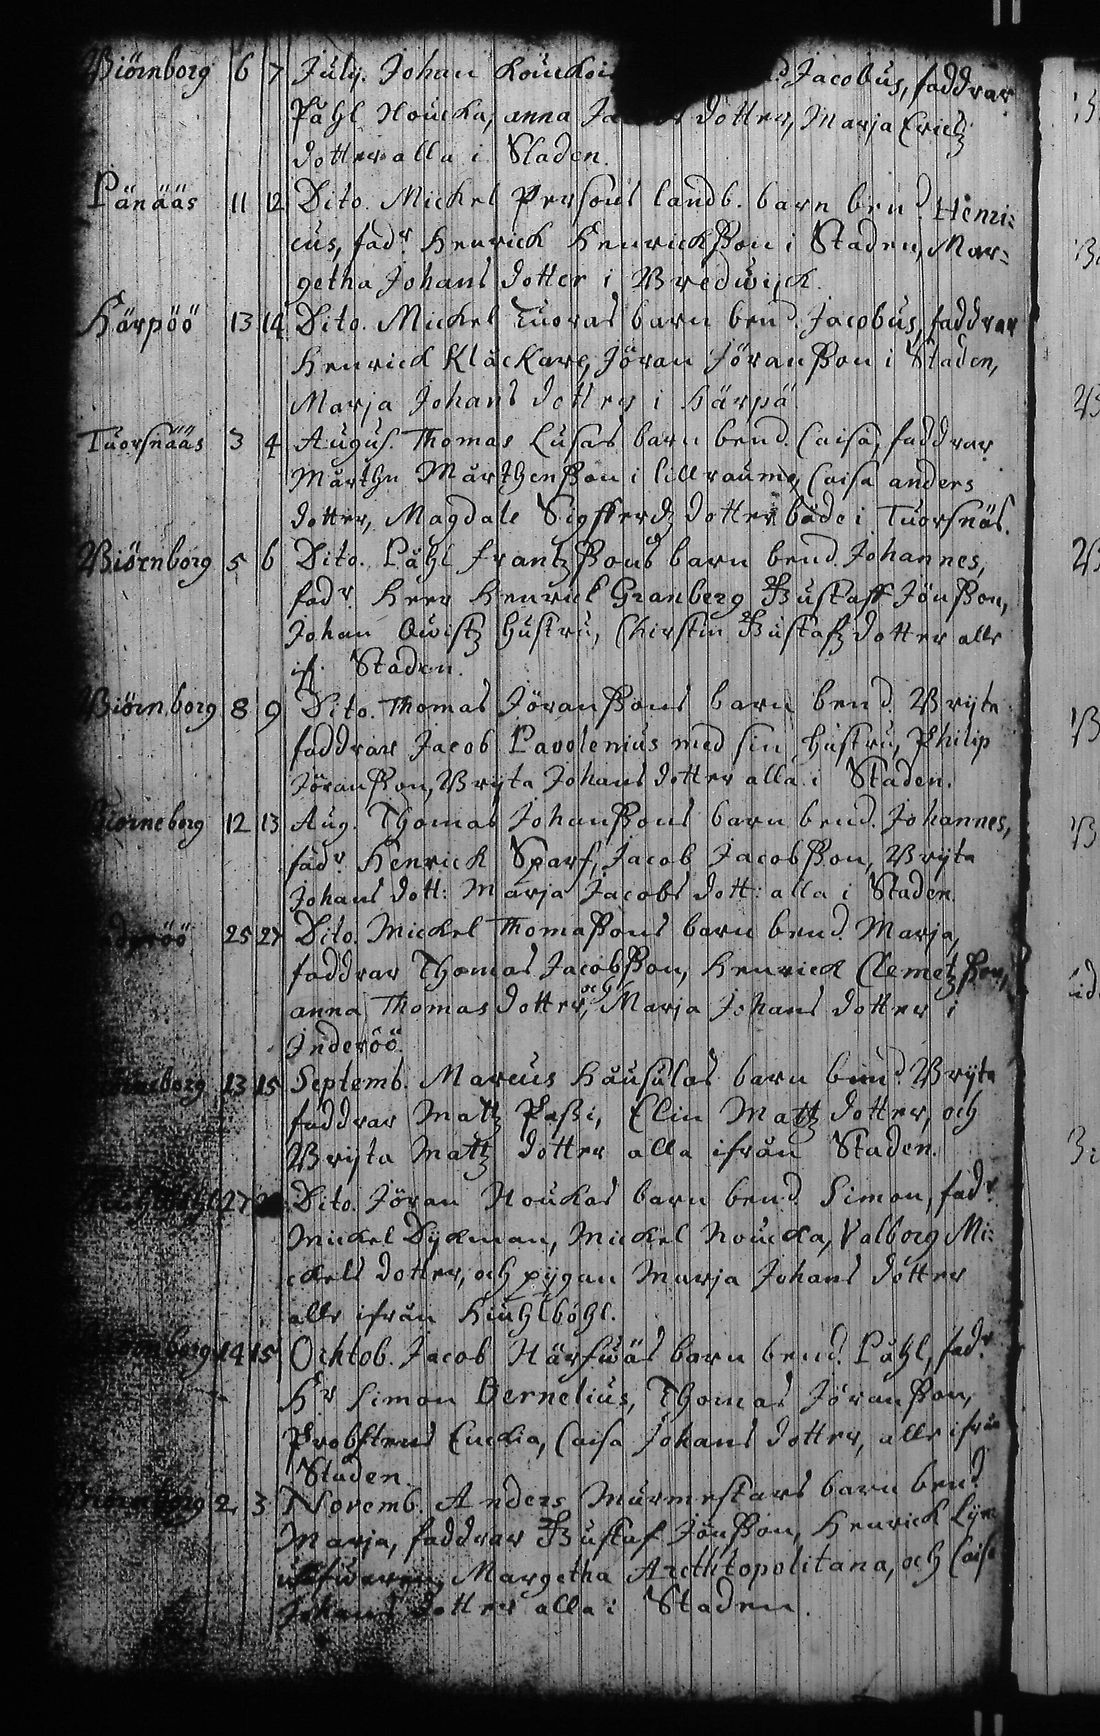 Biörnborg 6 7 July. Johan Jacobus, faddrar
Påhl Noucka, anna dotter, Marja Erichz
dotter alla i Staden.
Pänääs 11 12 Dito. Mickel Persons landb. barn bend Henri:
cus, fadr Henrich Henrichsson i Staden, Mar=
getha Johans dotter i Bredwijck.
Härpöö 13 14 Dito. Mickel Tuoras barn bend. Jacobus, faddrar
Henrich Klåckare, Jöran Jöransson i Staden,
Marja Johans dotter i Härpä
Tuorsnääs 3 4 Augus. Thomas Lusas barn bend. Caisa, faddrar
Mårthn Mårthensson i lillraumo, Caisa anders
dotter, Magdale Sigfferdz dotter både i Tuorsnäs.
Biörnborg 5 6 Dito. Påhl frantzsons barn bend. Johannes,
fadr. Herr Henrich Granberg Gustaff Jönsson,
Johan Qwistz hustru, Chirstin Gustafz dotter alle
if. Staden.
Biörnborg 8 9 Dito. Thomas Jöranssons barn bend. Bryta
faddrar Jacob Pavolenius med sin hustru, Philip
Jöransson, Bryta Johans dotter alla i Staden.
Biörneborg 12 13 Aug. Thomas Johanssons barn bend. Johannes,
fadr Henrich Sparf, Jacob Jacobsson, Bryta
Johans dott: Marja Jacobs dott: alla i Staden.
Inderöö 25 27 Dito. Mickel Thomassons barn bend. Marja,
faddrar Thomas Jacobsson, Henrich Clemetzson,
anna Thomas dotter, och Marja Johans dotter i
Inderöö.
13 15 Septemb. Marcus Håusulas barn bend. Bryta
faddrar Mattz Passi, Elin Mattz dotter, och
Bryta Mattz dotter alla ifrån Staden.
27 Dito. Jöran Noukas barn bend Simon, fadr.
Mickel Dÿkman, Mickel Noucka, Valborg Mi:
ckels dotter, och pygan Marja Johans dotter
alle ifrån Kiuhlböhl.
14 15 Ochtob. Jacob Härfwäs barn bend. Påhl, fadr.
Hr Simon Bernelius, Thomas Jöransson,
Probstens Enckia, Caisa Johans dotter, alle ifrån
Staden.
Biörneborg 2 3 Novemb. Anders Murmestars barn bend.
Marja, faddrar Gustaf Jönsson, Henrich
Margetha Arcthtopolitana, och Caisa
Johans dotter alla i Staden.